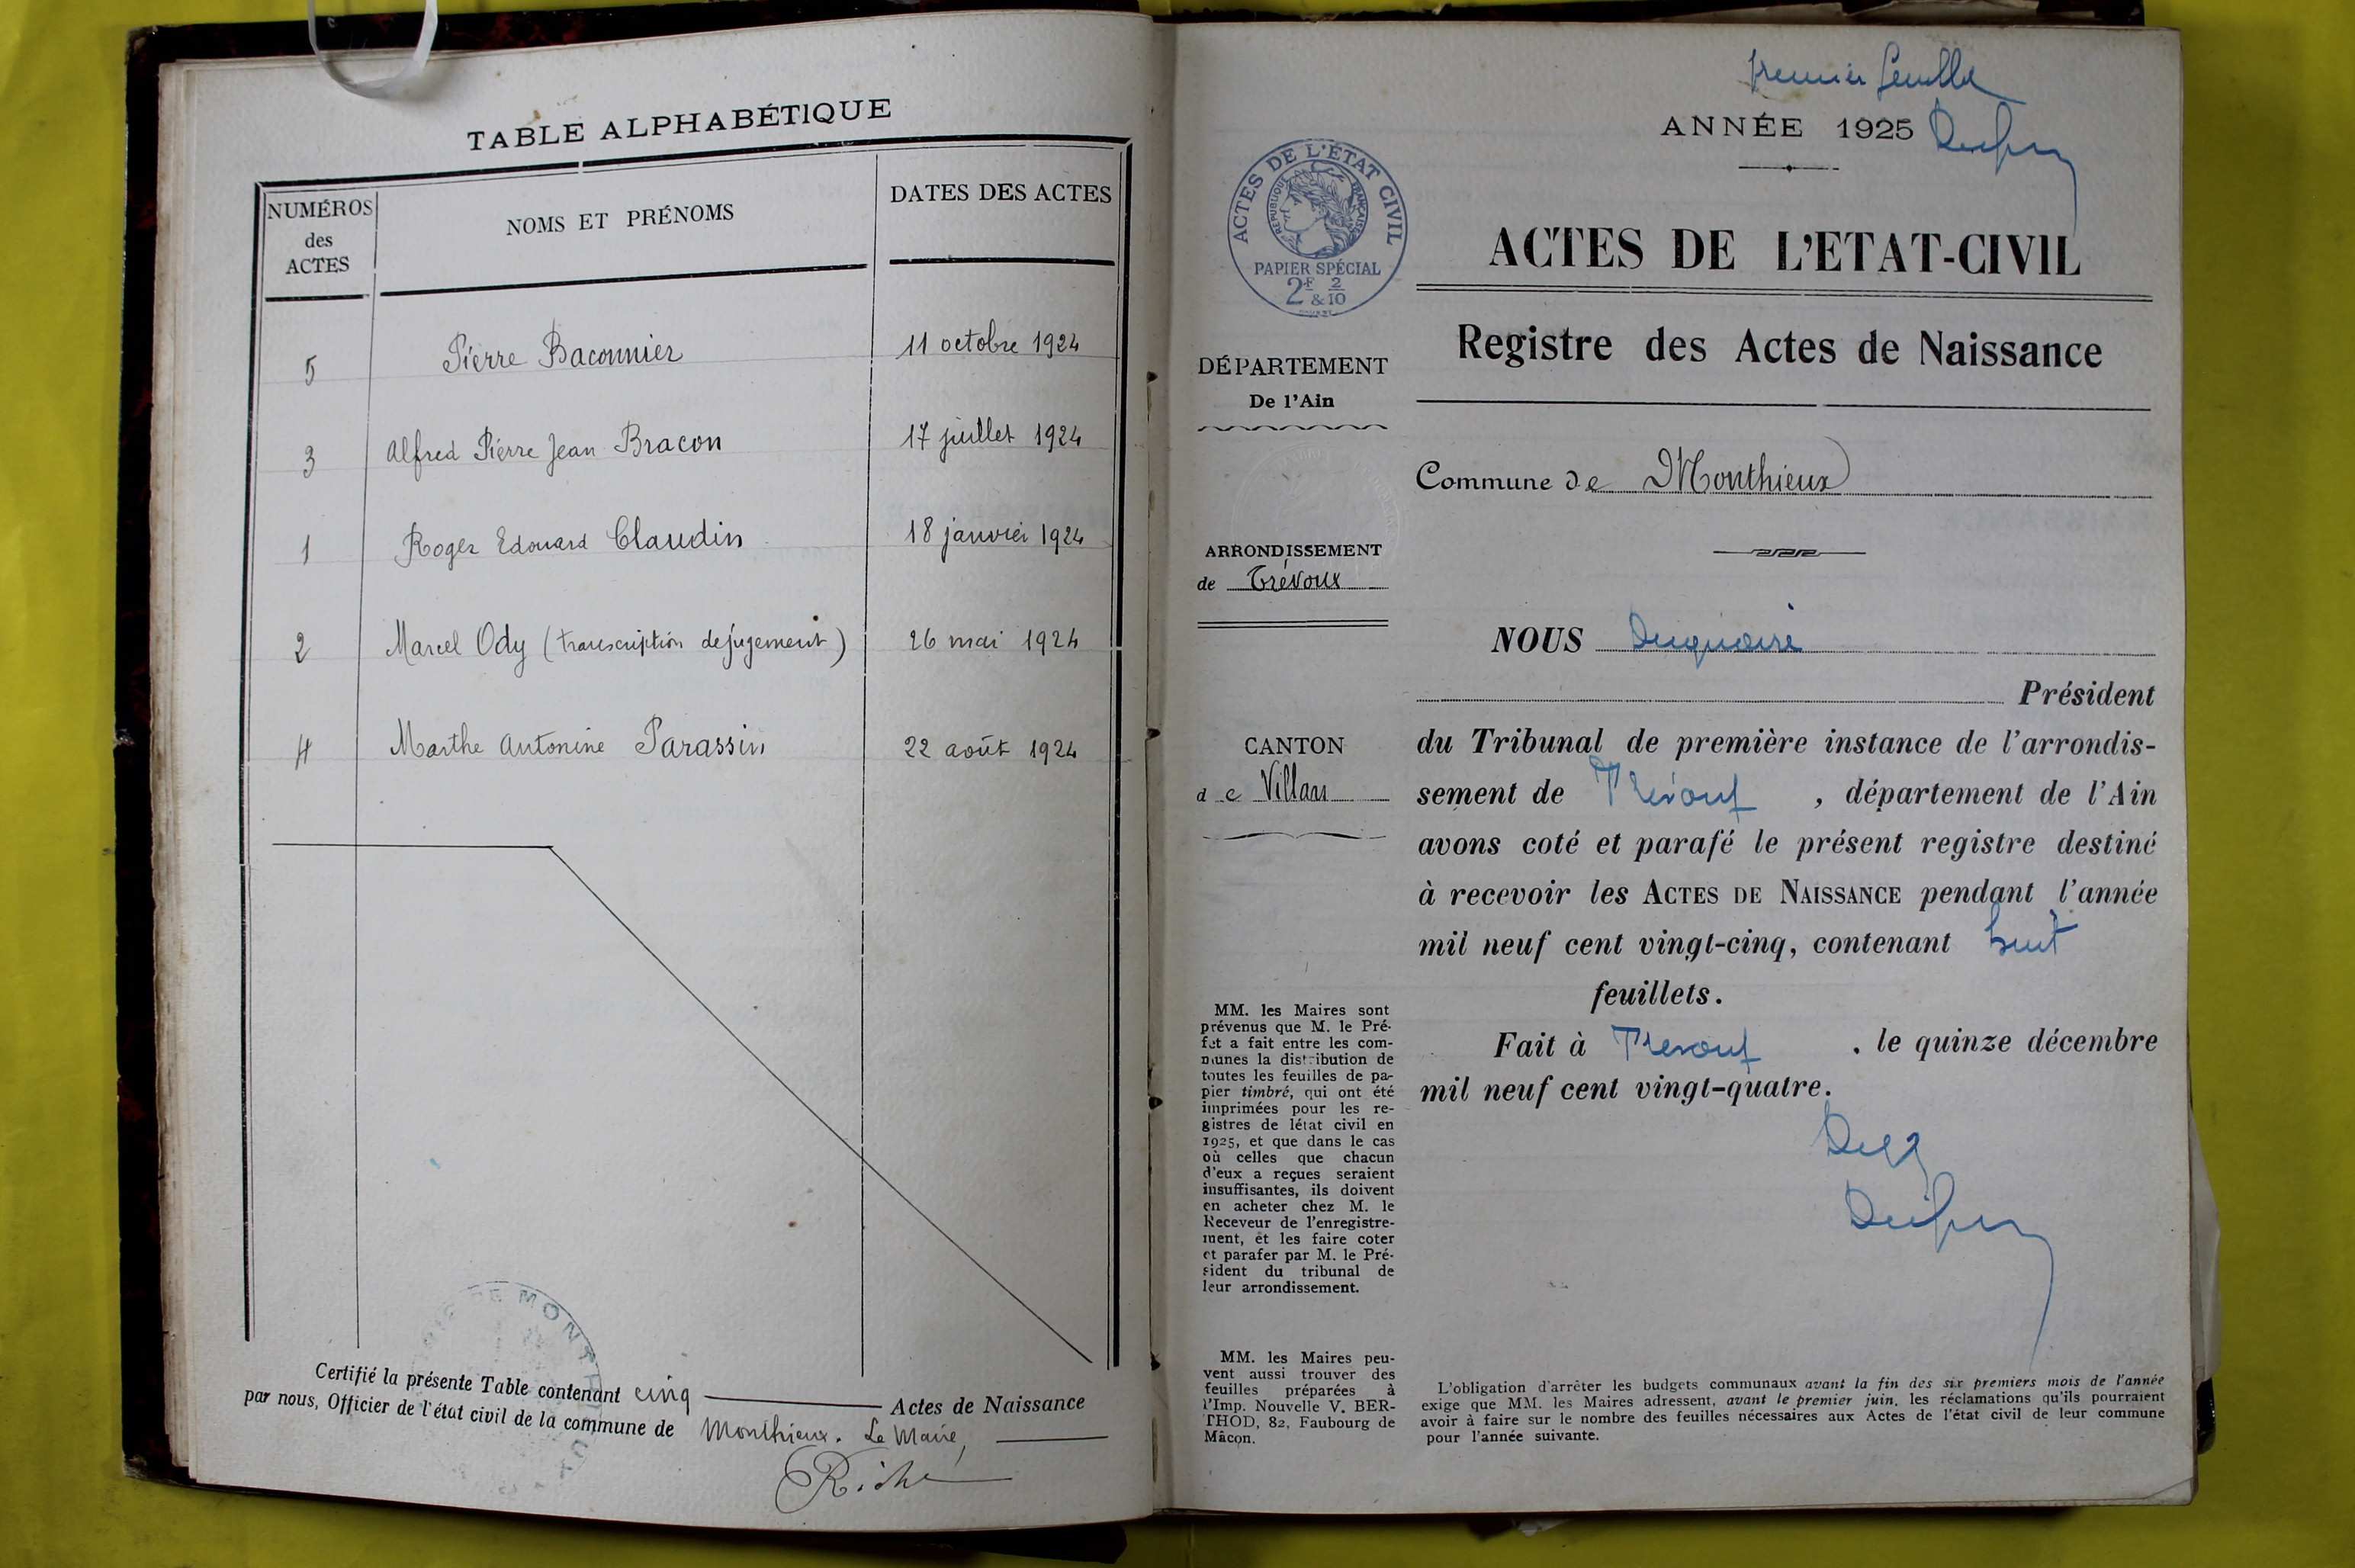 TABLE ALPHABÉTIQUE
NUMÉROS
des
ACTES
NOMS ET PRÉNOMS
DATES DES ACTES
5 Pierre Baconnier 11 octobre 1924
3 Alfred Pierre Jean Bracon 17 juillet 1924
1 Roger Edouard Claudin 18 janvier 1924
2 Marcel Ody (transcription de jugement) 26 mai 1924
4 Marthe Antonine Parassin 22 août 1924
Certifié la présente Table contenant cinq Actes de Naissance
par nous, Officier de l'état civil de la commune de Monthieux. Le Maire,
Riche
premier feuillet
ANNÉE 1925
ACTES DE L'ÉTAT CIVIL
RÉPUBLIQUE FRANÇAISE
PAPIER SPÉCIAL
2F & 2/10
ACTES DE L'ETAT-CIVIL
Registre des Actes de Naissance
DÉPARTEMENT
De l'Ain
Commune de Monthieux
ARRONDISSEMENT
de Trévoux
CANTON
de Villars
NOUS Duquaire
Président
du Tribunal de première instance de l'arrondis-
sement de Trévoux, département de l'Ain
avons coté et parafé le présent registre destiné
à recevoir les ACTES DE NAISSANCE pendant l'année
mil neuf cent vingt-cinq, contenant huit
feuillets.
Fait à Trevoux, le quinze décembre
mil neuf cent vingt-quatre.
MM. les Maires sont
prévenus que M. le Pré-
fet a fait entre les com-
munes la distribution de
toutes les feuilles de pa-
pier timbré, qui ont été
imprimées pour les re-
gistres de létat civil en
1925, et que dans le cas
où celles que chacun
d'eux a reçues seraient
insuffisantes, ils doivent
en acheter chez M. le
Receveur de l'enregistre-
ment, et les faire coter
et parafer par M. le Pré-
sident du tribunal de
leur arrondissement.
MM. les Maires peu-
vent aussi trouver des
feuilles préparées à
l'Imp. Nouvelle V. BER-
THOD, 82, Faubourg de
Mâcon.
L'obligation d'arrêter les budgets communaux avant la fin des six premiers mois de l'année
exige que MM. les Maires adressent, avant le premier juin, les réclamations qu'ils pourraient
avoir à faire sur le nombre des feuilles nécessaires aux Actes de l'état civil de leur commune
pour l'année suivante.